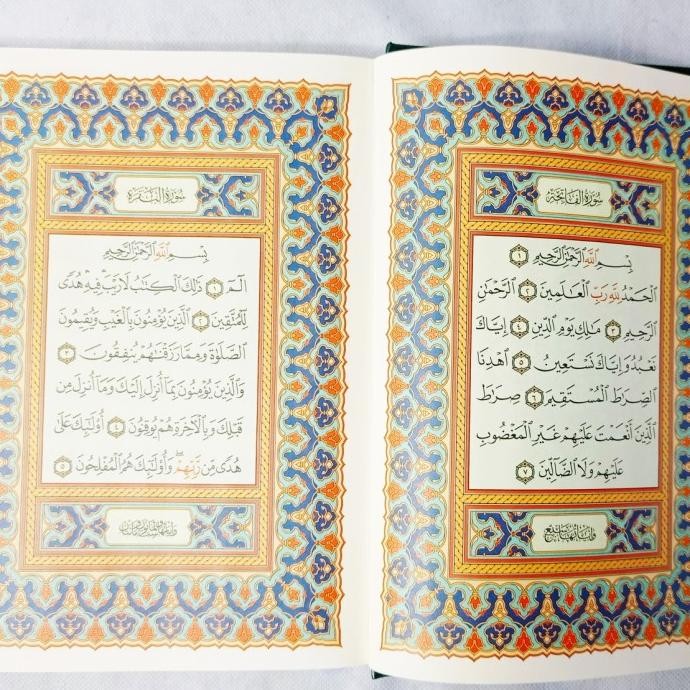 سورة الفاتحة
بِسْمِ اللَّهِ الرَّحْمَٰنِ الرَّحِيمِ ١
الْحَمْدُ لِلَّهِ رَبِّ الْعَالَمِينَ ٢ الرَّحْمَٰنِ
الرَّحِيمِ ٣ مَالِكِ يَوْمِ الدِّينِ ٤ إِيَّاكَ
نَعْبُدُ وَإِيَّاكَ نَسْتَعِينُ ٥ اهْدِنَا
الصِّرَاطَ الْمُسْتَقِيمَ ٦ صِرَاطَ
الَّذِينَ أَنْعَمْتَ عَلَيْهِمْ غَيْرِ الْمَغْضُوبِ
عَلَيْهِمْ وَلَا الضَّالِّينَ ٧
وآياتها سبع
سورة البقرة
بِسْمِ اللَّهِ الرَّحْمَٰنِ الرَّحِيمِ
الٓمٓ ١ ذَٰلِكَ الْكِتَابُ لَا رَيْبَ ۛ فِيهِ ۛ هُدًى
لِّلْمُتَّقِينَ ٢ الَّذِينَ يُؤْمِنُونَ بِالْغَيْبِ وَيُقِيمُونَ
الصَّلَوٰةَ وَمِمَّا رَزَقْنَاهُمْ يُنفِقُونَ ٣
وَالَّذِينَ يُؤْمِنُونَ بِمَا أُنزِلَ إِلَيْكَ وَمَا أُنزِلَ مِن
قَبْلِكَ وَبِالْآخِرَةِ هُمْ يُوقِنُونَ ٤ أُولَٰئِكَ عَلَىٰ
هُدًى مِّن رَّبِّهِمْ ۖ وَأُولَٰئِكَ هُمُ الْمُفْلِحُونَ ٥